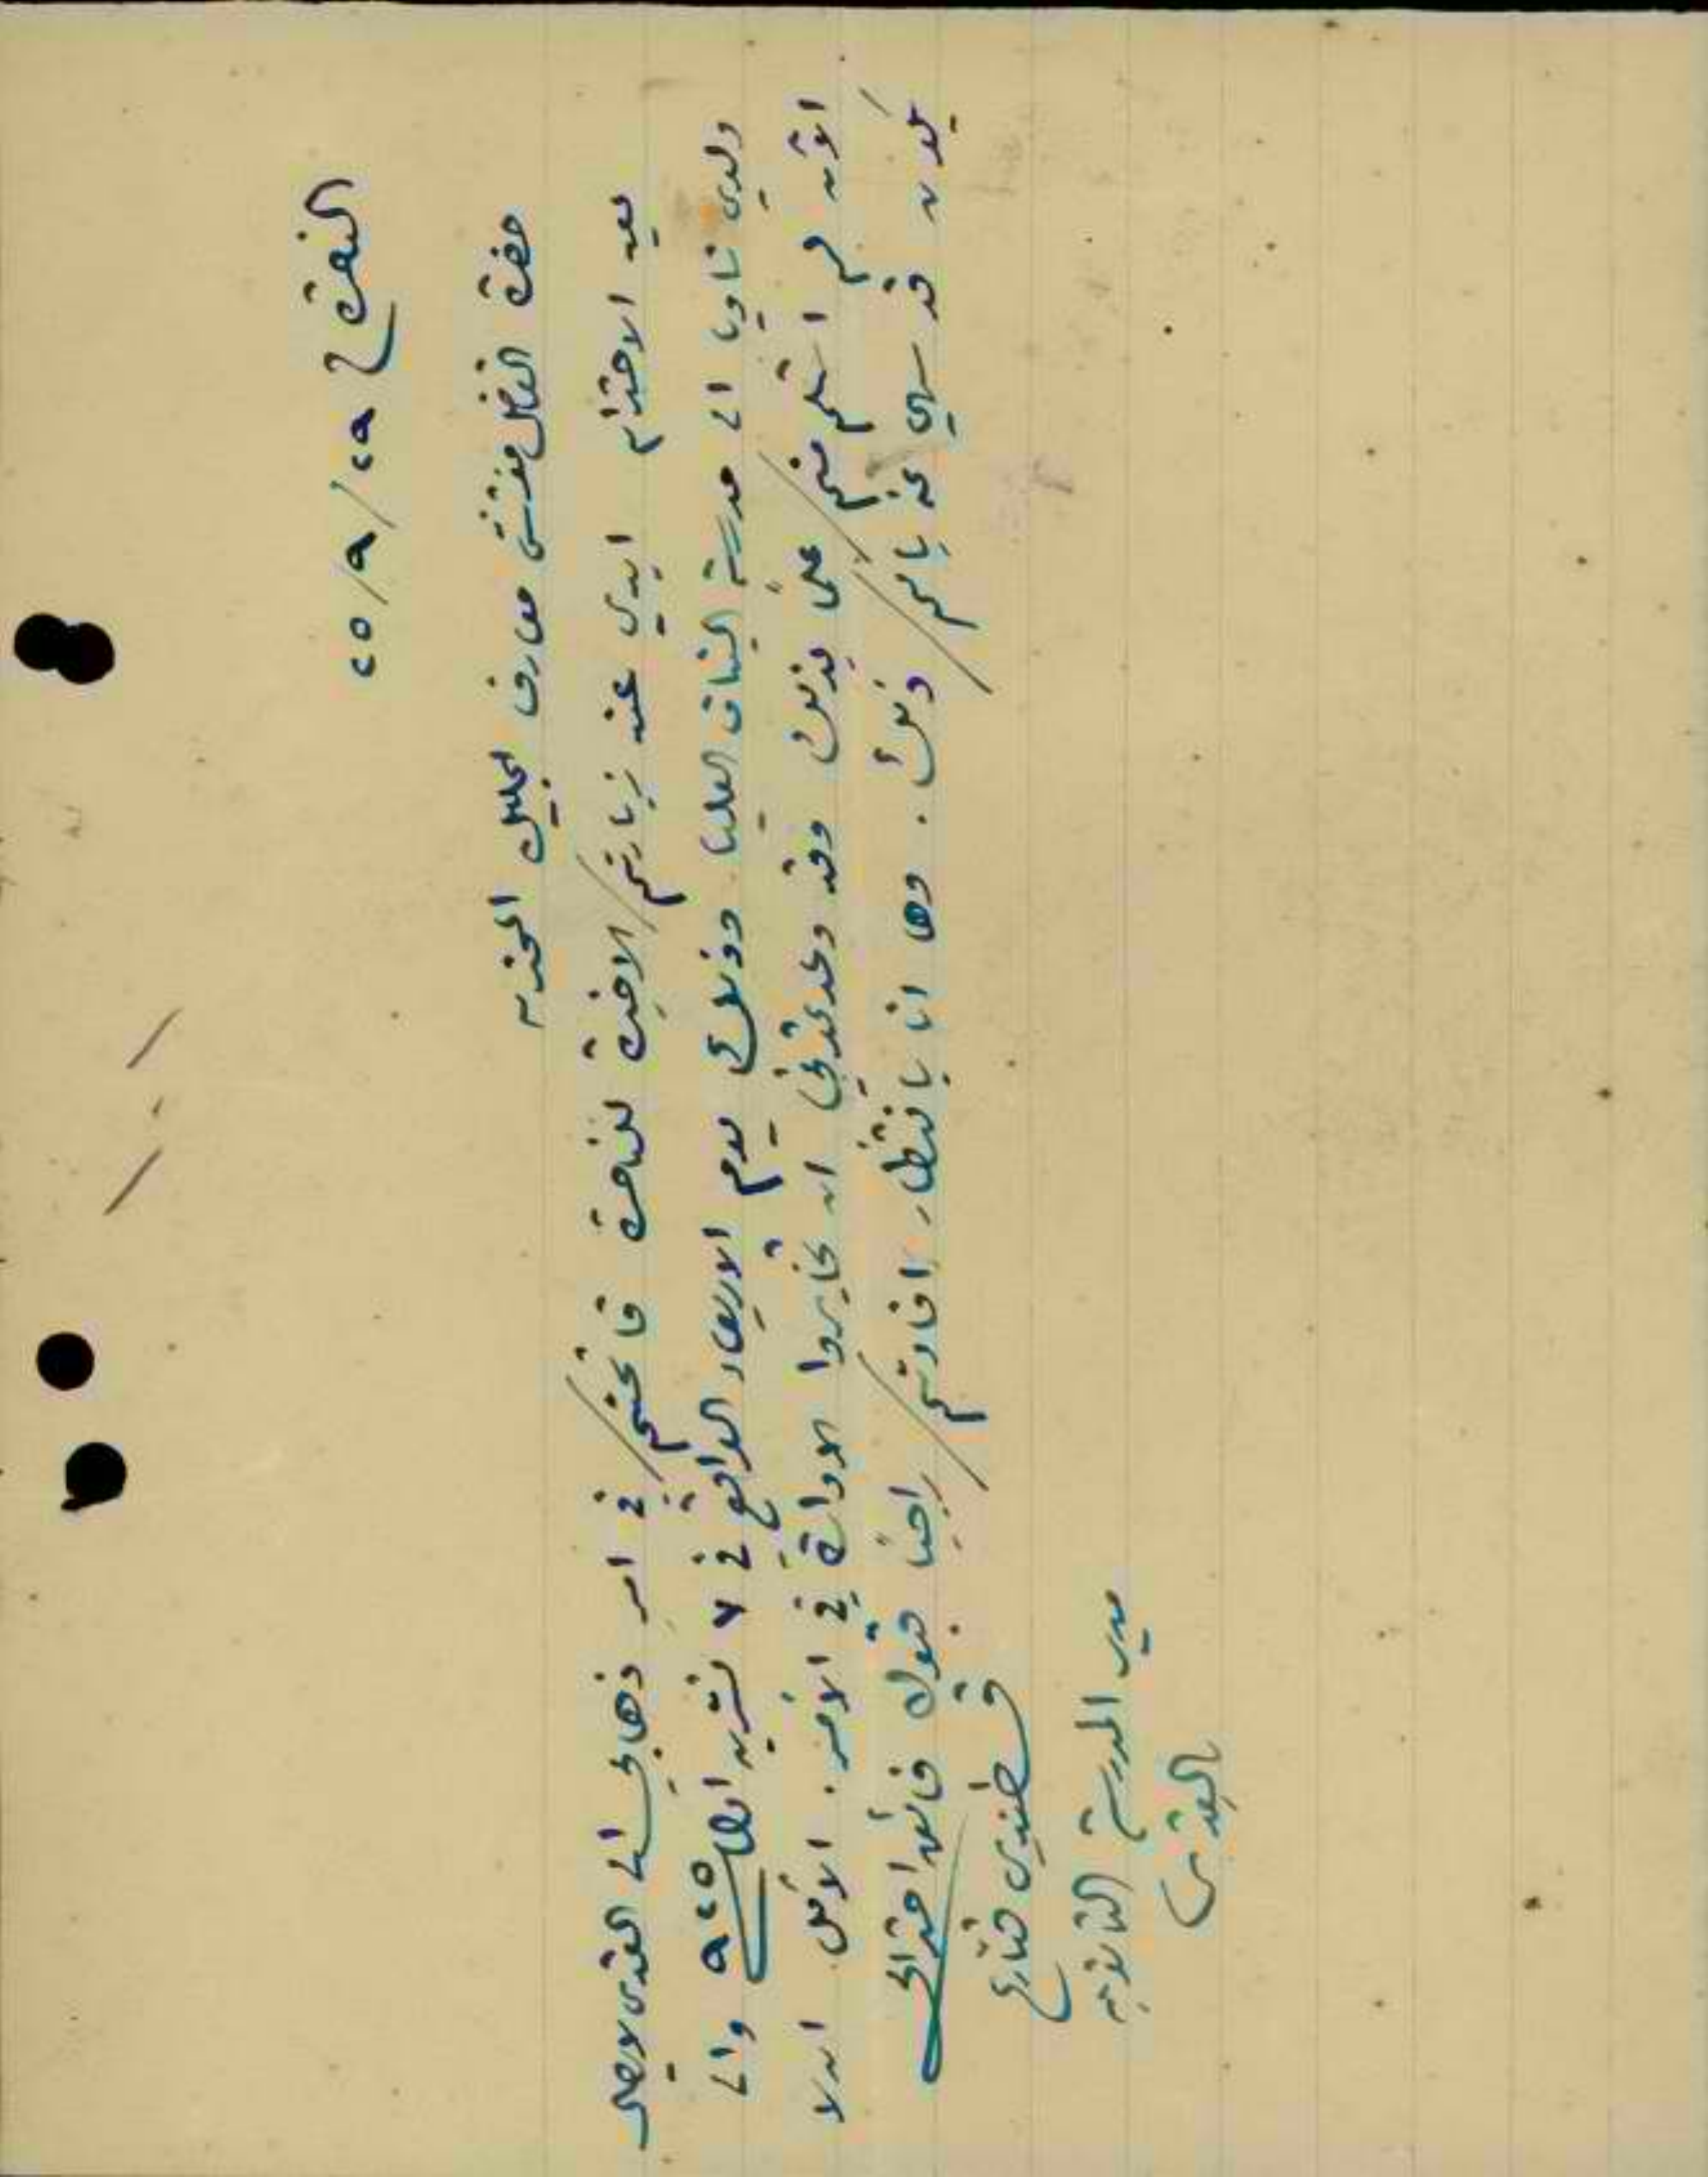 الناصرة في ٢٩/٩/٢٥
حضرة الفاضل مفتش معارف الجليل المحترم
بعد الاحترام ابدي عند زيارتكم الاخيرة للناصرة فاتحتكم في امر ذهابي الى القدس لاصطحب
ولدي ناديا الى مدرسة البنات العليا وذلك يوم الاربعاء الواقع في ٧ تشرين اول ٩٢٥ والى
الآن لم استلم منكم علماً بذلك وقد وعدتموني ان تخابروا الادارة في الامر. الأمل ان لا
يكون قد سهي عن بالكم ذلك. وها انا بانتظار افادتكم راجياً قبول فائق احترامي
مدير المدرسة الثانوية